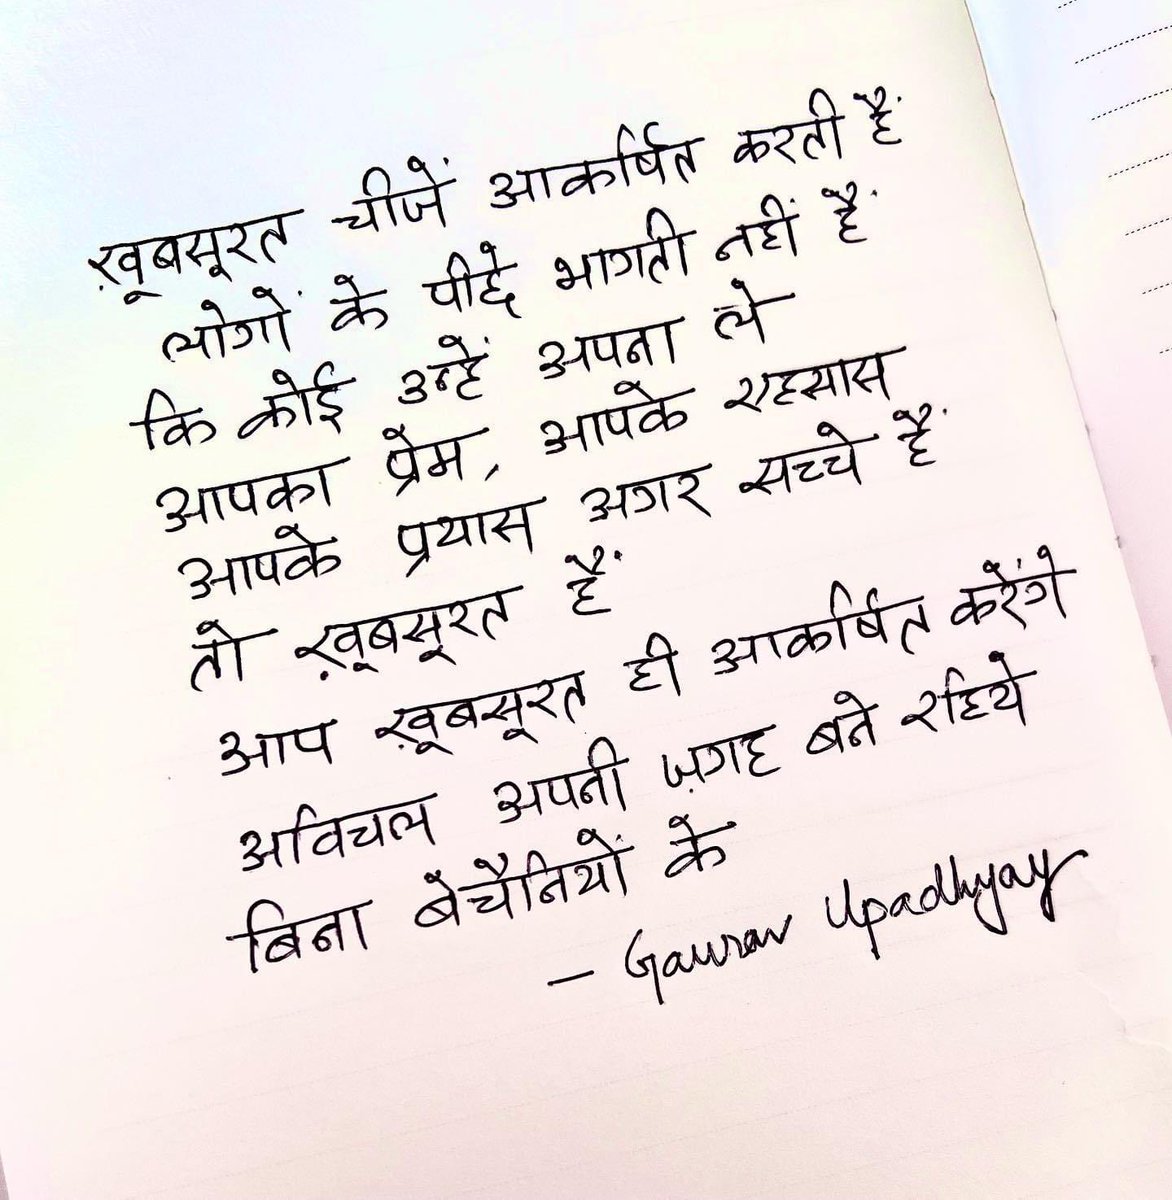 ख़ूबसूरत चीजें आकर्षित करती हैं
लोगों के पीछे भागती नहीं हैं
कि कोई उन्हें अपना ले
आपका प्रेम, आपके एहसास
आपके प्रयास अगर सच्चे हैं
तो ख़ूबसूरत हैं
आप ख़ूबसूरत ही आकर्षित करेंगे
अविचल अपनी ज़गह बने रहिये
बिना बेचैनियों के
- Gaurav Upadhyay